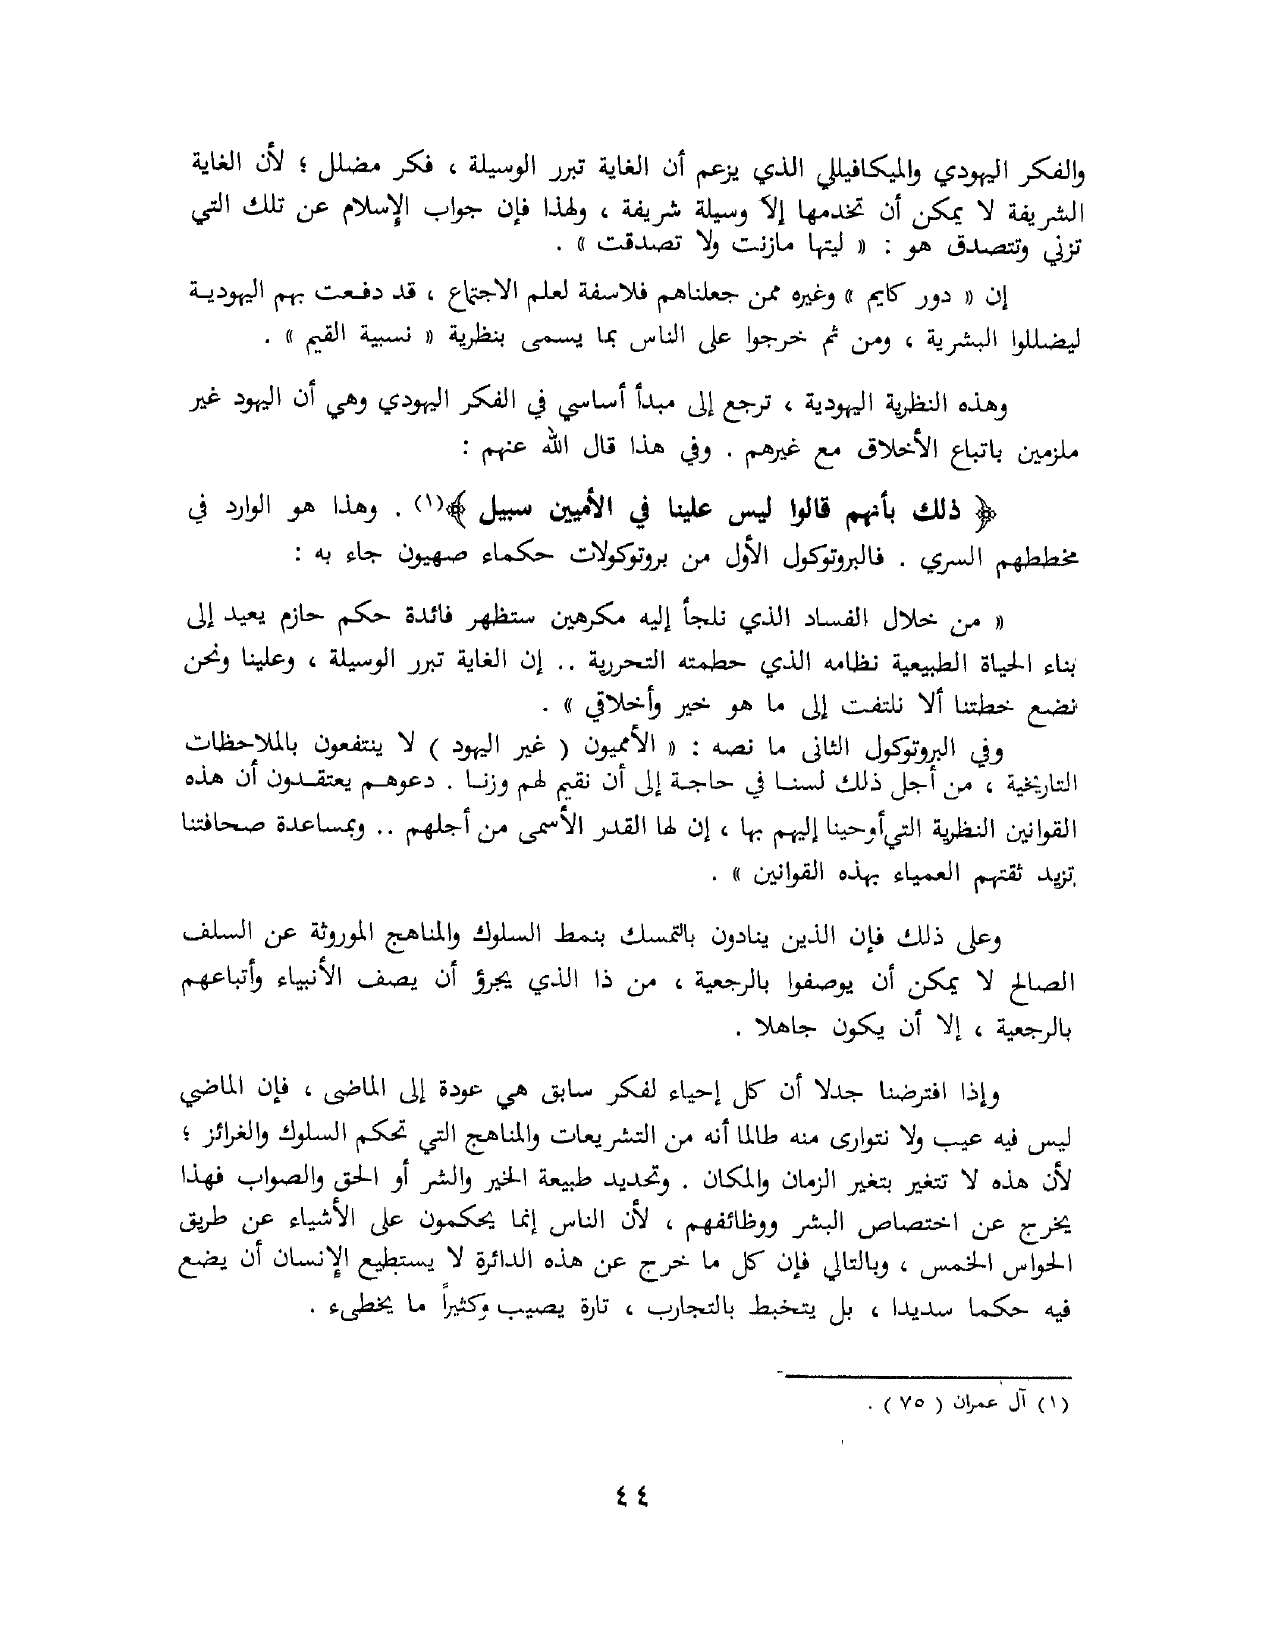 والفكر اليهودي والميكافيللي الذي يزعم أن الغاية تبرر الوسيلة ، فكر مضلل ؛ لأن الغاية
الشريفة لا يمكن أن تخدمها إلا وسيلة شريفة ، ولهذا فإن جواب الإسلام عن تلك التي
تزني وتتصدق هو : « ليتها مازنت ولا تصدقت » .
إن « دور كايم » وغيره ممن جعلناهم فلاسفة لعلم الاجتماع ، قد دفعت بهم اليهودية
ليضللوا البشرية ، ومن ثم خرجوا على الناس بما يسمى بنظرية « نسبية القيم » .
وهذه النظرية اليهودية ، ترجع إلى مبدأ أساسي في الفكر اليهودي وهي أن اليهود غير
ملزمين باتباع الأخلاق مع غيرهم . وفي هذا قال الله عنهم :
﴿ ذلك بأنهم قالوا ليس علينا في الأميين سبيل ﴾(١) . وهذا هو الوارد في
مخططهم السري . فالبروتوكول الأول من بروتوكولات حكماء صهيون جاء به :
« من خلال الفساد الذي نلجأ إليه مكرهين ستظهر فائدة حكم حازم يعيد إلى
بناء الحياة الطبيعية نظامه الذي حطمته التحررية .. إن الغاية تبرر الوسيلة ، وعلينا ونحن
نضع خطتنا ألا نلتفت إلى ما هو خير وأخلاقي » .
وفي البروتوكول الثانى ما نصه : « الأمميون ( غير اليهود ) لا ينتفعون بالملاحظات
التاريخية ، من أجل ذلك لسنا في حاجة إلى أن نقيم لهم وزنا . دعوهم يعتقدون أن هذه
القوانين النظرية التي أوحينا إليهم بها ، إن لها القدر الأسمى من أجلهم .. وبمساعدة صحافتنا
تزيد ثقتهم العمياء بهذه القوانين » .
وعلى ذلك فإن الذين ينادون بالتمسك بنمط السلوك والمناهج الموروثة عن السلف
الصالح لا يمكن أن يوصفوا بالرجعية ، من ذا الذي يجرؤ أن يصف الأنبياء وأتباعهم
بالرجعية ، إلا أن يكون جاهلا .
وإذا افترضنا جدلا أن كل إحياء لفكر سابق هي عودة إلى الماضى ، فإن الماضي
ليس فيه عيب ولا نتوارى منه طالما أنه من التشريعات والمناهج التي تحكم السلوك والغرائز ؛
لأن هذه لا تتغير بتغير الزمان والمكان . وتحديد طبيعة الخير والشر أو الحق والصواب فهذا
يخرج عن اختصاص البشر ووظائفهم ، لأن الناس إنما يحكمون على الأشياء عن طريق
الحواس الخمس ، وبالتالي فإن كل ما خرج عن هذه الدائرة لا يستطيع الإنسان أن يضع
فيه حكما سديدا ، بل يتخبط بالتجارب ، تارة يصيب وكثيراً ما يخطىء .
(١) آل عمران ( ٧٥ ) .
٤٤